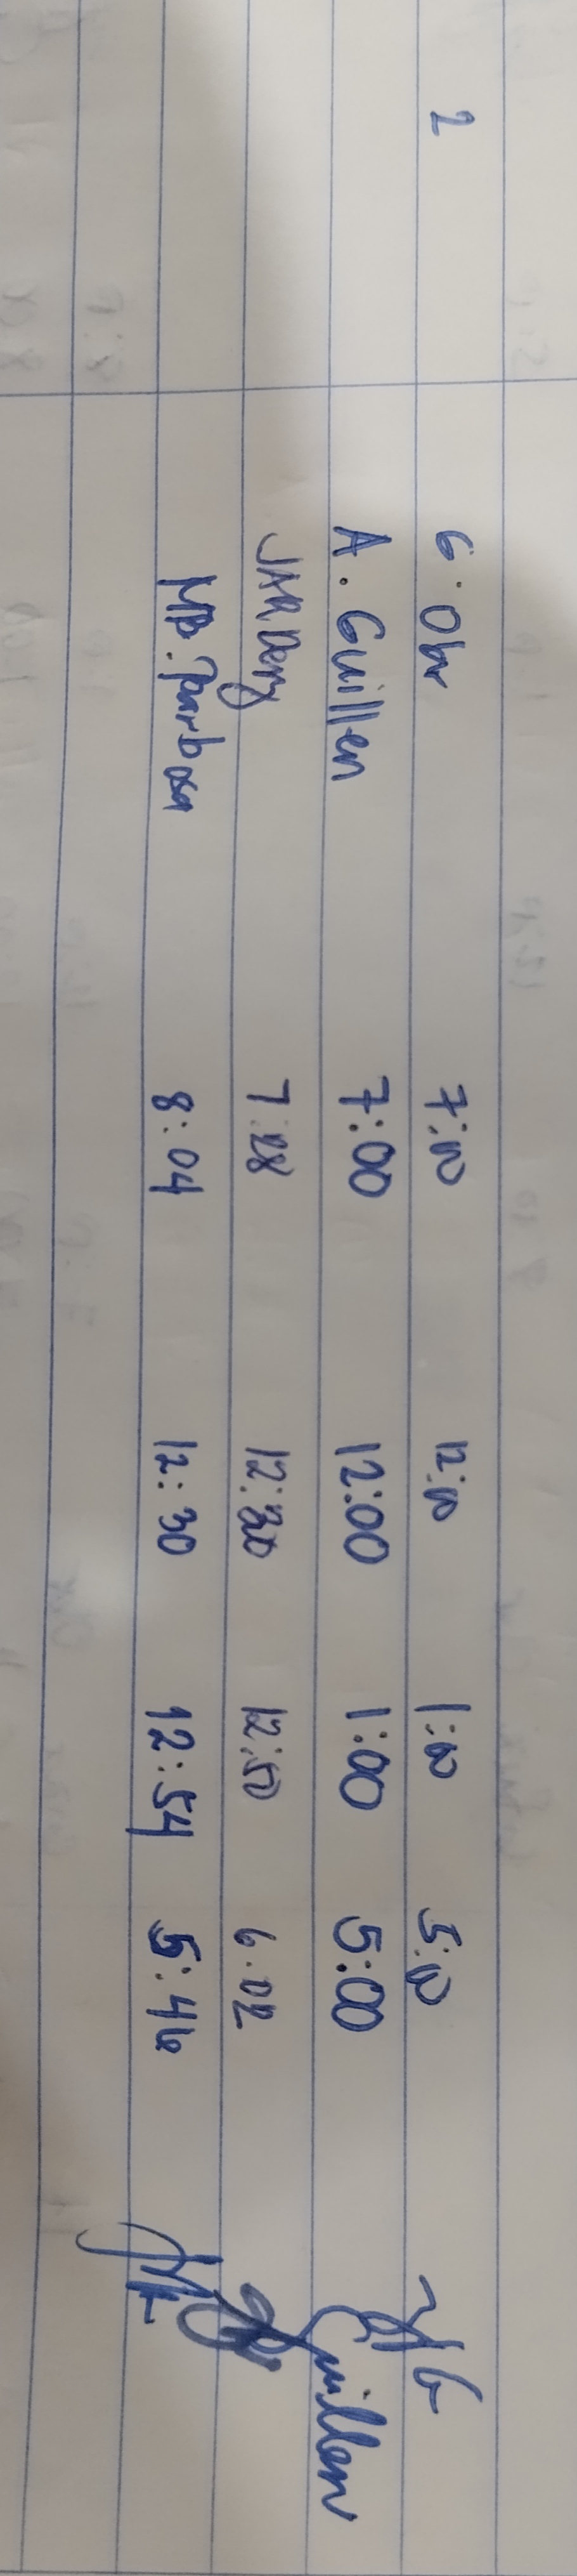 2 G. Obr 7:00 12:00 1:00 5:00
A. Guillen 7:00 12:00 1:00 5:00 Guillen
7:28 12:30 12:50 6:02
MB. Barbosa 8:04 12:30 12:54 5:46